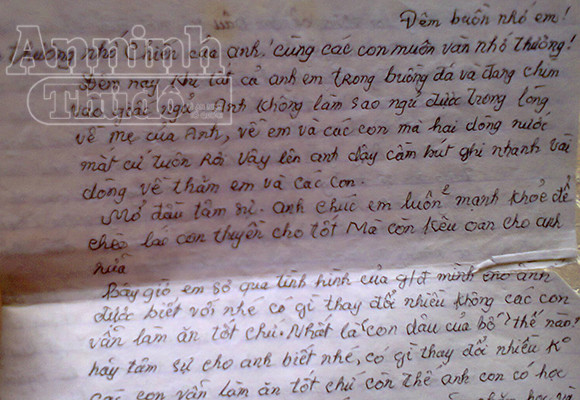 Đêm buồn nhớ em!
Thương nhớ Chiến của anh! cùng các con muôn vàn nhớ thương!
Đêm nay khi tất cả anh em trong buồng đã và đang chìm
vào giấc ngủ. Anh không làm sao ngủ được trong lòng
về mẹ của Anh, về em và các con mà hai dòng nước
mắt cứ tuôn Rơi vậy lên anh dậy cầm bút ghi nhanh vài
dòng về thăm em và các con.
Mở đầu tâm sự. Anh chúc em luôn mạnh khỏe để
chèo lái con thuyền cho tốt Mà còn kêu oan cho anh
nữa
Bây giờ em sơ qua tình hình của g/đ mình cho anh
được biết với nhé có gì thay đổi nhiều không các con
vẫn làm ăn tốt chứ. Nhất là "con dâu của bố" thế nào!
hãy tâm sự cho anh biết nhé, có gì thay đổi nhiều Ko
các con vẫn làm ăn tốt chứ còn thế anh con có học
An ninh
Thủ đô